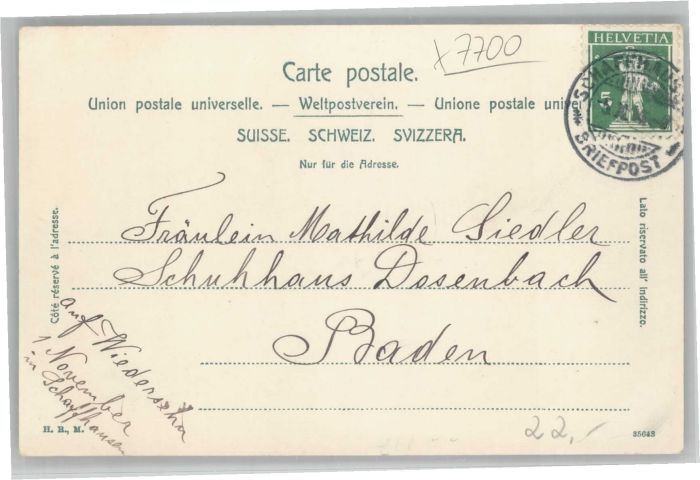 x7700
HELVETIA
5
BRIEFPOST
Carte postale.
Union postale universelle. — Weltpostverein. — Unione postale
SUISSE. SCHWEIZ. SVIZZERA.
Nur für die Adresse.
Côté réservé à l'adresse.
Lato riservato all' indirizzo.
Fräulein Mathilde Siedler
Schuhhaus Dosenbach
Baden
auf Wiedersehn
1 November
in Schaffhausen
H. R., M.
22,-